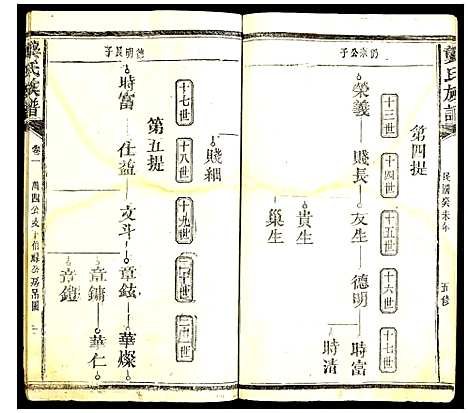 龔氏族譜
民國癸未年
五修
第四提
仍宗公子
十三世
十四世
十五世
十六世
十七世
榮義
賤長
友生
德明
時富
時清
貴生
巢生
賤細
德明長子
十七世
十八世
十九世
二十世
廿一世
第五提
時富
仕益
文斗
章鉉
華燦
章鏞
華仁
章鎧
龔氏族譜
卷一